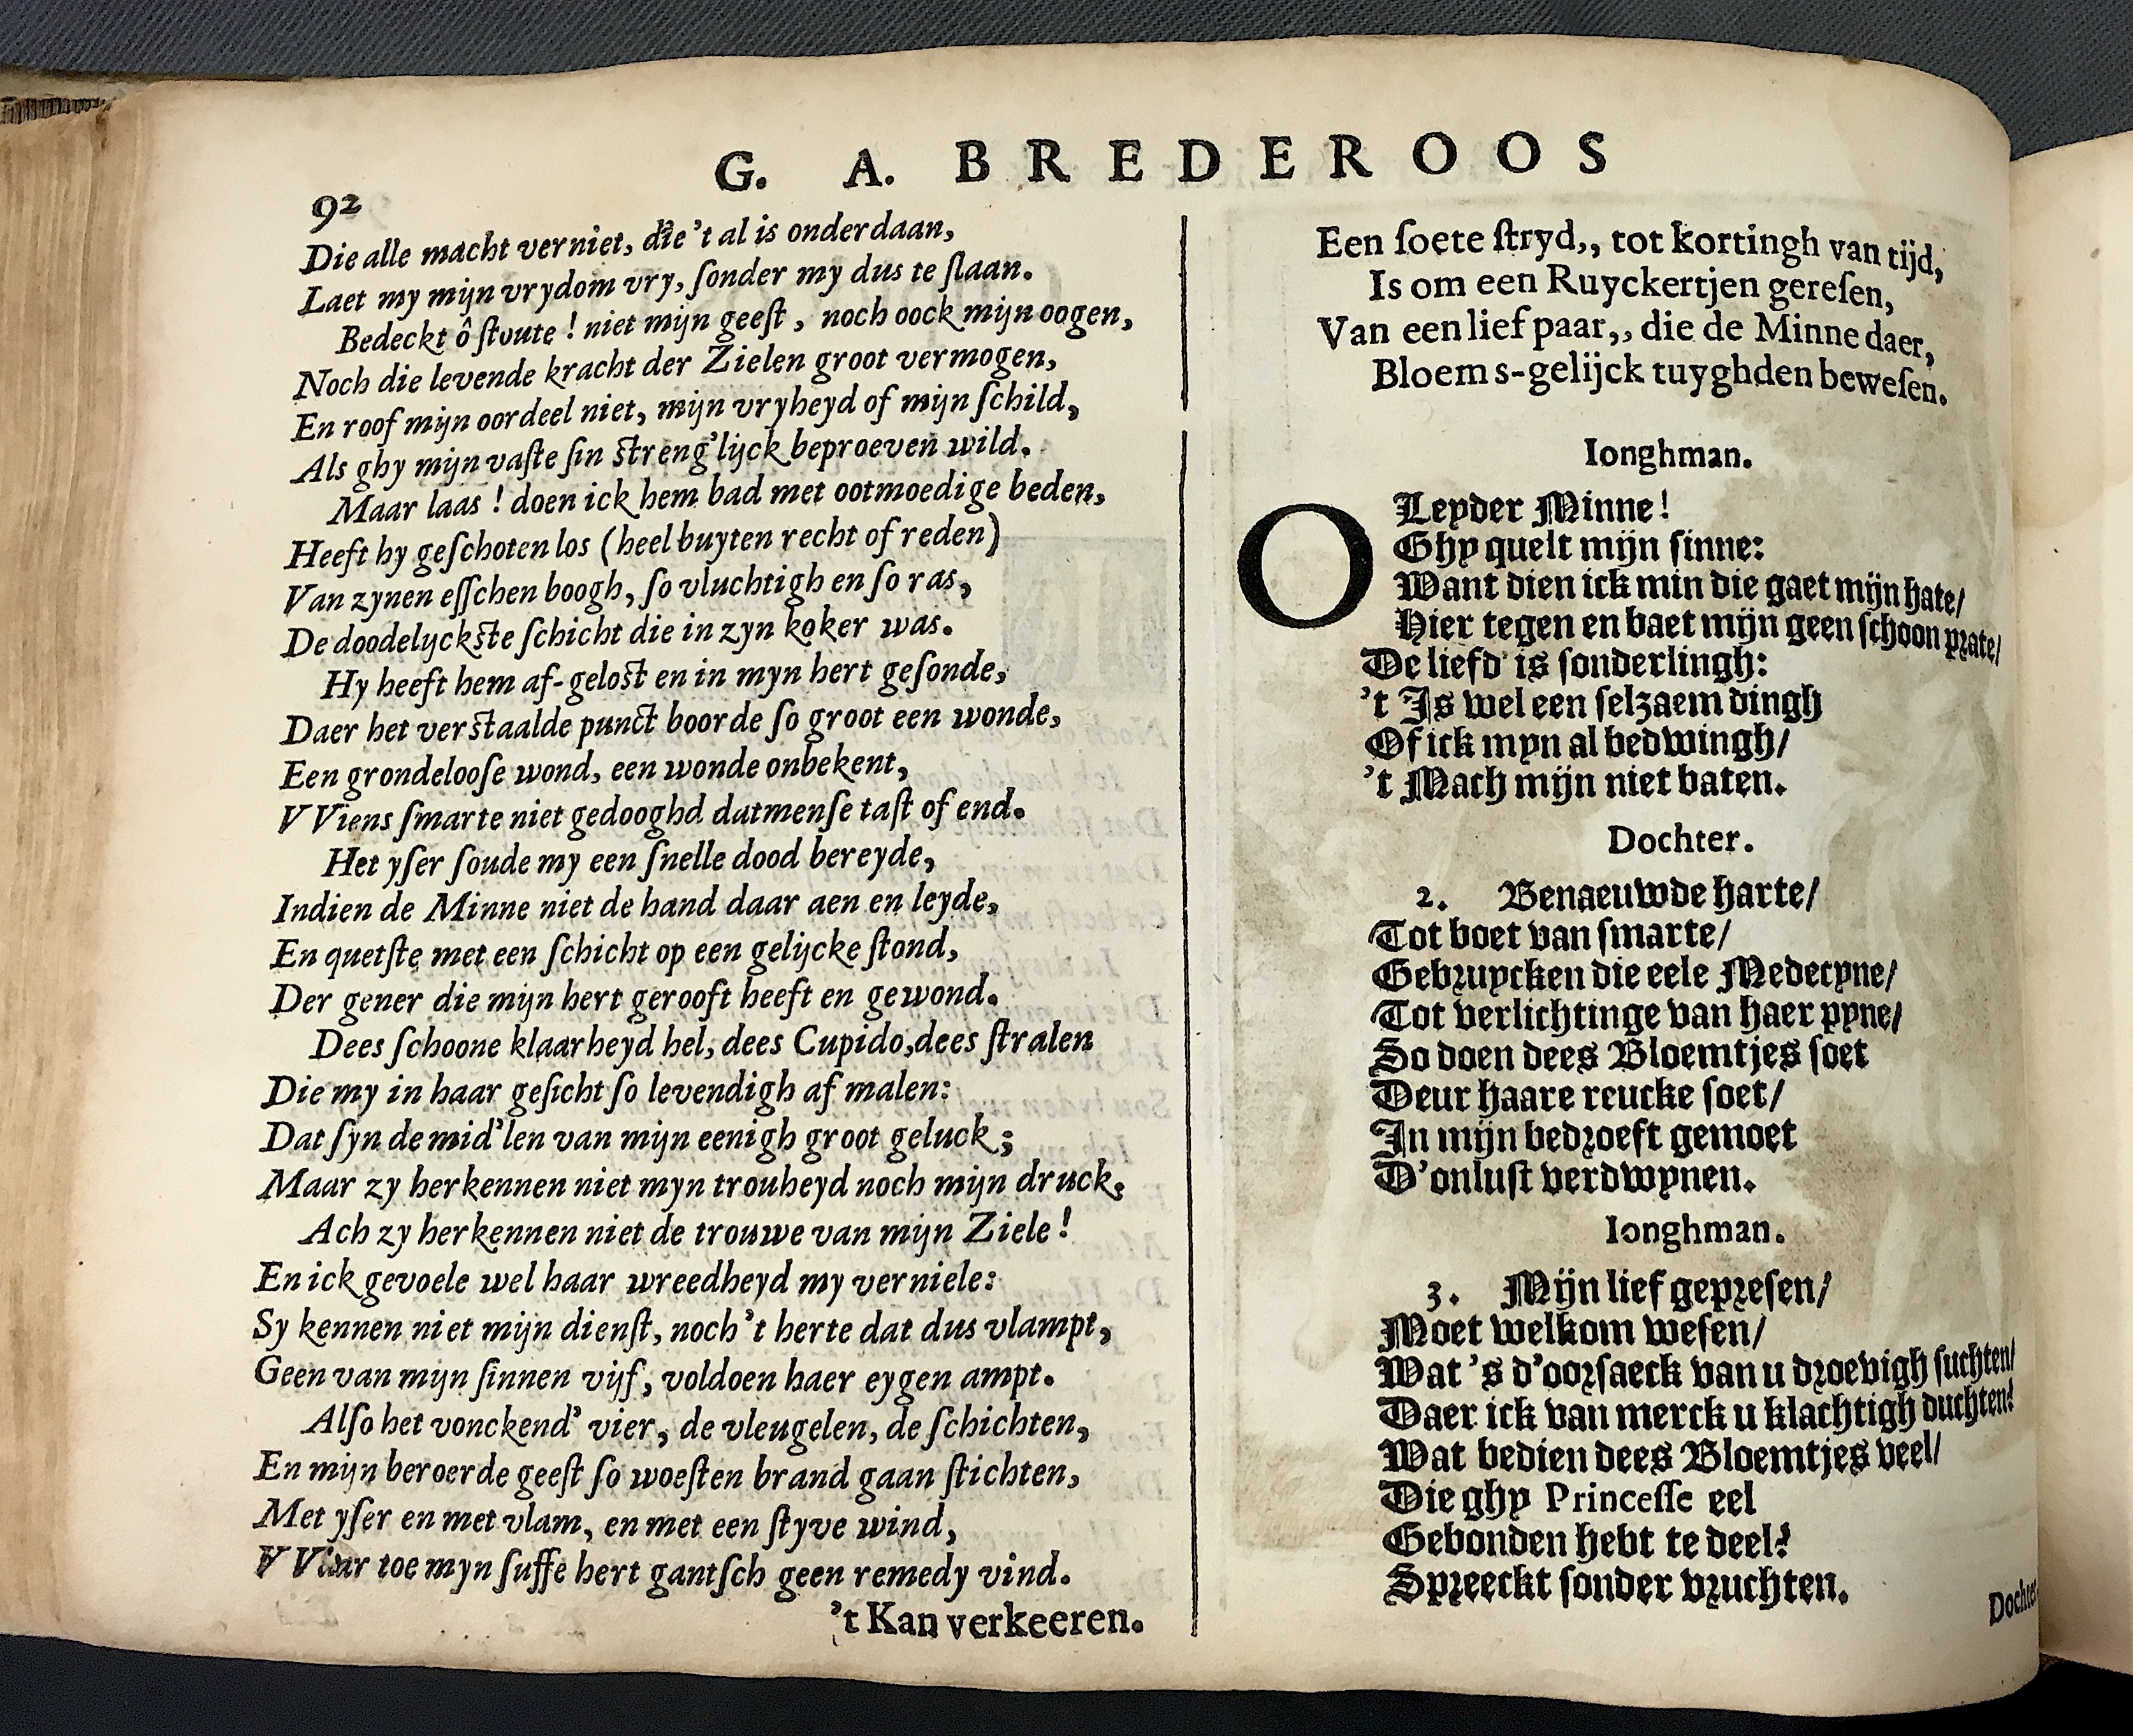 G. A. BREDEROOS
92
Die alle macht verniet, die 't al is onderdaan,
Laet my mijn vrydom vry, ſonder my dus te ſlaan.
Bedeckt ô ſtoute ! niet mijn geeſt, noch oock mijn oogen,
Noch die levende kracht der Zielen groot vermogen,
En roof mijn oordeel niet, mijn vryheyd of mijn ſchild,
Als ghy mijn vaſte ſin ſtreng'lijck beproeven wild.
Maar laas ! doen ick hem bad met ootmoedige beden,
Heeft hy geſchoten los (heel buyten recht of reden)
Van zynen eſſchen boogh, ſo vluchtigh en ſo ras,
De doodelyckſte ſchicht die in zyn koker was.
Hy heeft hem af-geloſt en in myn hert geſonde,
Daer het verſtaalde punct boorde ſo groot een wonde,
Een grondelooſe wond, een wonde onbekent,
VViens ſmarte niet gedooghd datmenſe taſt of end.
Het yſer ſoude my een ſnelle dood bereyde,
Indien de Minne niet de hand daar aen en leyde,
En quetſte met een ſchicht op een gelijcke ſtond,
Der gener die mijn hert gerooft heeft en gewond.
Dees ſchoone klaarheyd hel, dees Cupido, dees ſtralen
Die my in haar geſicht ſo levendigh af malen:
Dat ſyn de mid'len van mijn eenigh groot geluck;
Maar zy herkennen niet myn trouheyd noch mijn druck.
Ach zy herkennen niet de trouwe van mijn Ziele !
En ick gevoele wel haar wreedheyd my verniele:
Sy kennen niet mijn dienſt, noch 't herte dat dus vlampt,
Geen van mijn ſinnen vijf, voldoen haer eygen ampt.
Alſo het vonckend' vier, de vleugelen, de ſchichten,
En mijn beroerde geeſt ſo woeſten brand gaan ſtichten,
Met yſer en met vlam, en met een ſtyve wind,
VVaar toe myn ſuffe hert gantſch geen remedy vind.
't Kan verkeeren.
Een ſoete ſtryd,, tot kortingh van tijd,
Is om een Ruyckertjen gereſen,
Van een lief paar,, die de Minne daer,
Bloems-gelijck tuyghden beweſen.
Ionghman.
O Leyder Minne!
Ghy quelt mijn ſinne:
Want dien ick min die gaet mijn hate/
Hier tegen en baet mijn geen ſchoon prate/
De liefd' is ſonderlingh:
't Is wel een ſelzaem dingh
Of ick myn al bedwingh/
't Mach mijn niet baten.
Dochter.
2. Benaeuwde harte/
Tot boet van ſmarte/
Gebruycken die eele Medecyne/
Tot verlichtinge van haer pyne/
So doen dees Bloemtjes ſoet
Deur haare reucke ſoet/
In mijn bedroeft gemoet
D'onluſt verdwynen.
Ionghman.
3. Mijn lief gepreſen/
Moet welkom weſen/
Wat 's d'oorſaeck van u droevigh ſuchten/
Daer ick van merck u klachtigh duchten?
Wat bedien dees Bloemtjes veel/
Die ghy Princeſſe eel
Gebonden hebt te deel?
Spreeckt ſonder vruchten.
Dochter